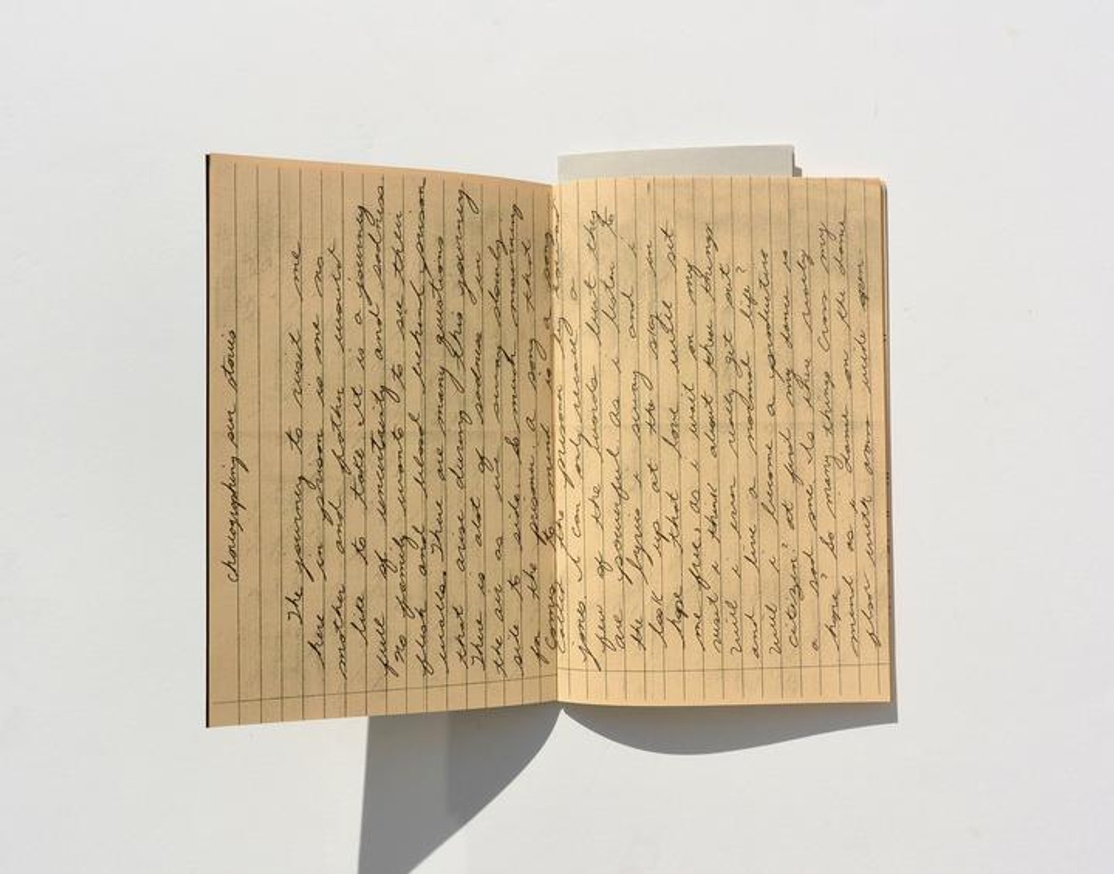 choreographing sun stories
The journey to visit me
here in prison is one no
mother and father would
like to take. It is a journey
full of uncertainty and sadness
No family wants to see their
flesh and blood behind prison
walls. There are many questions
that arise during this journey
There is alot of sadness in
the air as we sway slowly
side to side. So much meaning
for the prison. a song that
comes to mind is a song
called the prison by
jones. I can only recall a
few of the words but they
are powerful as i listen to
the lyrics i sway and i
look up at the sky in
hope that love will set
me free. as i wait on my
visit i think about these things
will i ever really get out
and live a normal life?
will i become a productive
citizen? at first my dance is
a sad one. Is there really
hope? So many things cross my
mind as i dance on the dance
floor with arms wide open